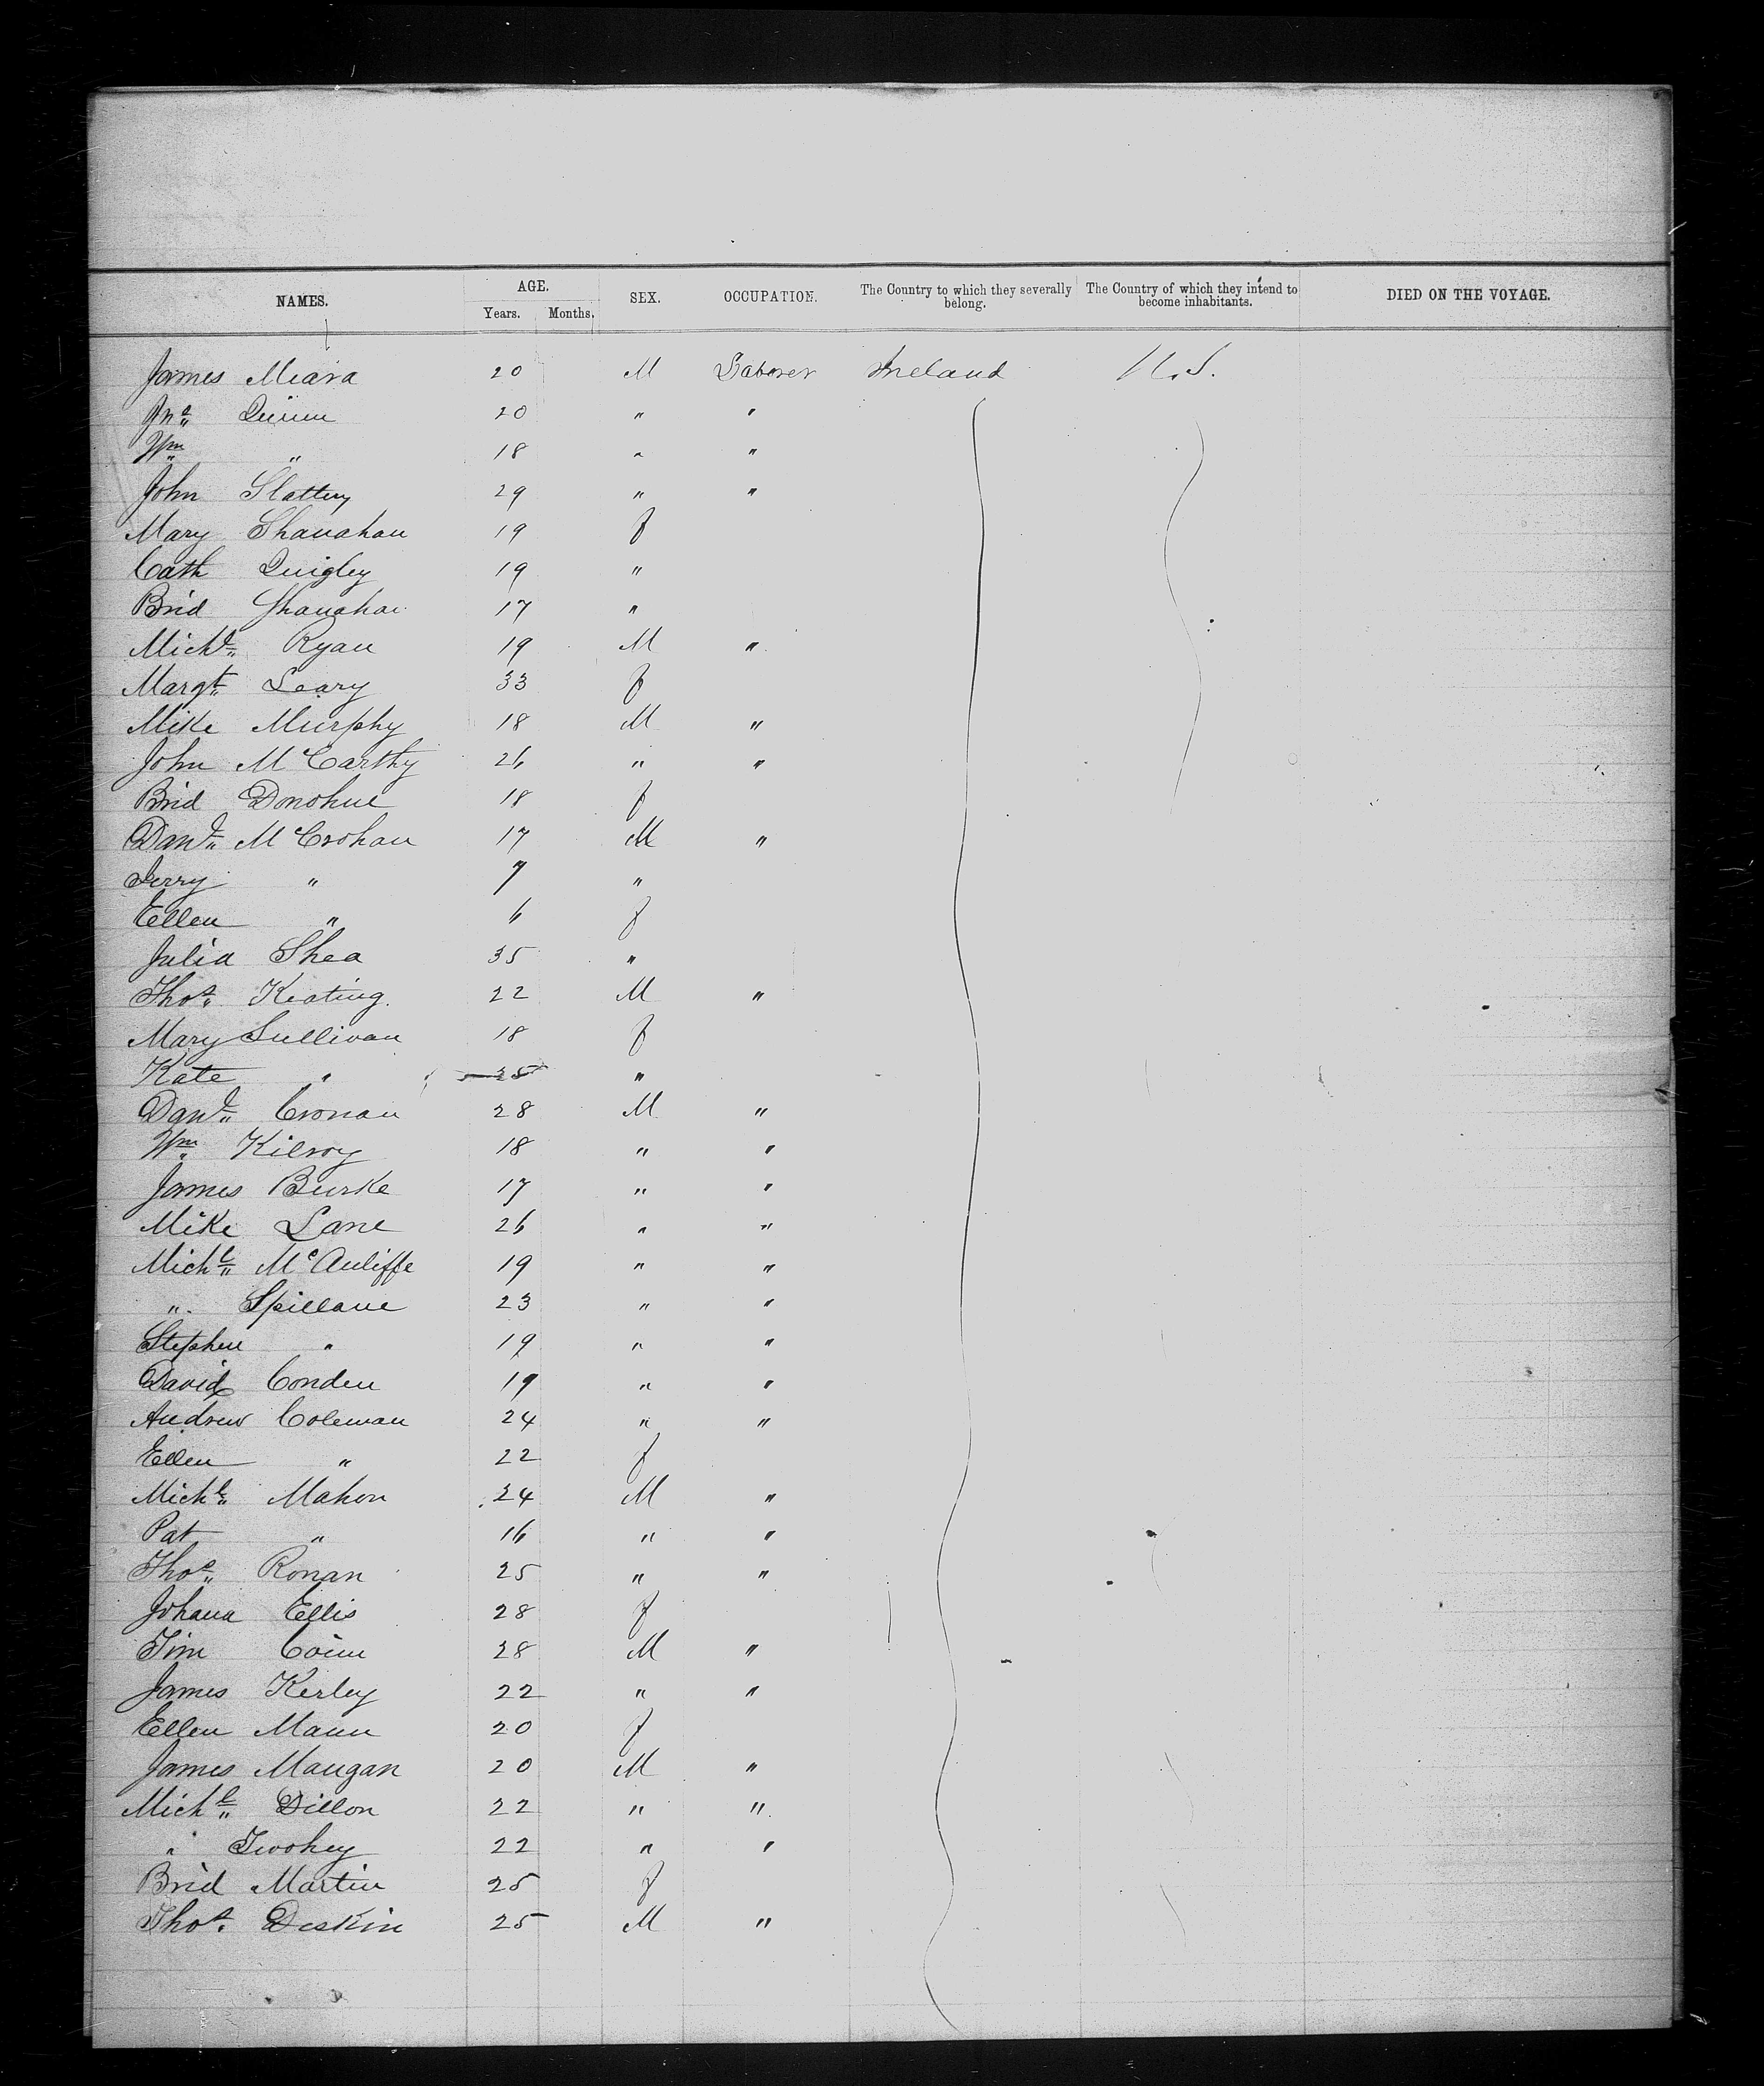 NAMES. AGE. SEX. OCCUPATION. The Country to which they severally belong. The Country of which they intend to become inhabitants. DIED ON THE VOYAGE.
Years. Months.
James Meara 20 M Laborer Ireland U.S.
Jno. Quinn 20 " "
Wm " 18 " "
John Slattery 29 " "
Mary Shanahan 19 f
Cath Quigley 19 "
Brid Shanahan 17 "
Michl. Ryan 19 M "
Margt. Leary 33 f
Mike Murphy 18 M "
John McCarthy 26 " "
Brid Donohue 18 f
Danl. McCrohan 17 M "
Jerry " 7 "
Ellen " 6 f
Julia Shea 35 "
Thos. Keating 22 M "
Mary Sullivan 18 f
Kate " 25 "
Danl. Cronan 28 M "
Wm. Kilroy 18 " "
James Burke 17 " "
Mike Lane 26 " "
Michl. McAuliffe 19 " "
" Spillane 23 " "
Stephen " 19 " "
David Conden 19 " "
Andrew Coleman 24 " "
Ellen " 22 f
Michl. Mahon 24 M "
Pat " 16 " "
Thos. Ronan 25 " "
Johana Ellis 28 f
Tim 28 M "
James Kerley 22 " "
Ellen Mann 20 f
James Mangan 20 M "
Michl. Dillon 22 " "
" Twohey 22 " "
Brid Martin 25 f
Thos. Deskin 25 M "